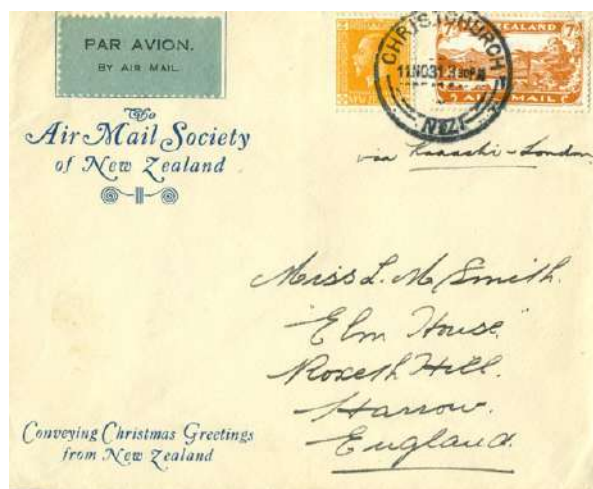 PAR AVION.
BY AIR MAIL.
The
Air Mail Society
of New Zealand
CHRISTCHURCH
11NO31.3 30PM
N.Z.
ZEALAND
7D
AIR MAIL
via Karachi - London
Miss L. M. Smith.
"Elm House"
Roxeth Hill.
Harrow.
England.
Conveying Christmas Greetings
from New Zealand